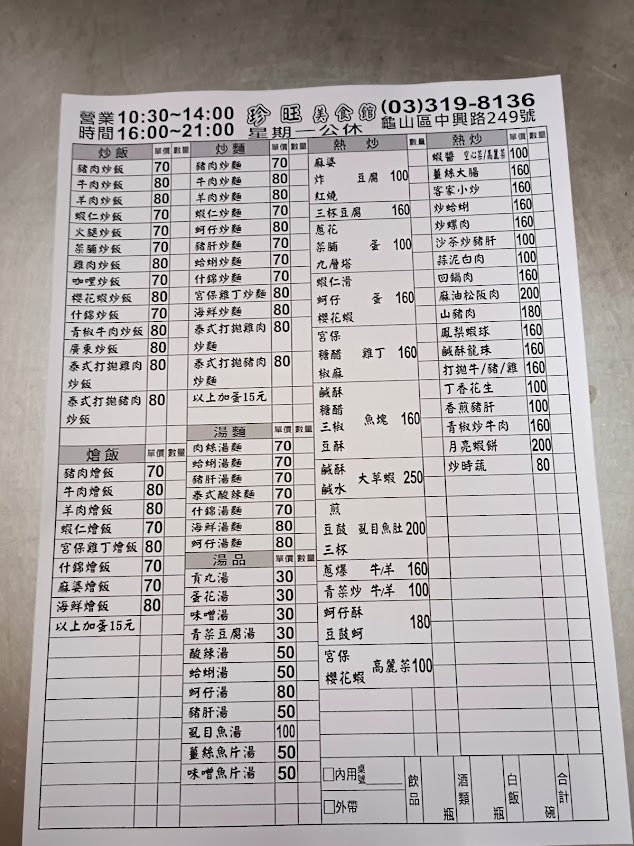 營業10:30~14:00
時間16:00~21:00
珍旺美食館
星期一公休
(03)319-8136
龜山區中興路249號
炒飯 單價 數量
豬肉炒飯 70
牛肉炒飯 80
羊肉炒飯 80
蝦仁炒飯 70
火腿炒飯 70
菜脯炒飯 70
雞肉炒飯 80
咖哩炒飯 70
櫻花蝦炒飯 80
什錦炒飯 70
青椒牛肉炒飯 80
廣東炒飯 80
泰式打拋雞肉炒飯 80
泰式打拋豬肉炒飯 80
燴飯 單價 數量
豬肉燴飯 70
牛肉燴飯 80
羊肉燴飯 80
蝦仁燴飯 70
宮保雞丁燴飯 80
什錦燴飯 70
麻婆燴飯 70
海鮮燴飯 80
以上加蛋15元
炒麵 單價 數量
豬肉炒麵 70
牛肉炒麵 80
羊肉炒麵 80
蝦仁炒麵 70
蚵仔炒麵 80
豬肝炒麵 70
蛤蜊炒麵 70
什錦炒麵 70
宮保雞丁炒麵 80
海鮮炒麵 80
泰式打拋雞肉炒麵 80
泰式打拋豬肉炒麵 80
以上加蛋15元
湯麵 單價 數量
肉絲湯麵 70
蛤蜊湯麵 70
豬肝湯麵 70
泰式酸辣麵 70
什錦湯麵 70
海鮮湯麵 80
蚵仔湯麵 80
湯品 單價 數量
貢丸湯 30
蛋花湯 30
味噌湯 30
青菜豆腐湯 30
酸辣湯 50
蛤蜊湯 50
蚵仔湯 80
豬肝湯 50
虱目魚湯 100
薑絲魚片湯 50
味噌魚片湯 50
熱炒 數量
麻婆
炸 豆腐 100
紅燒
三杯豆腐 160
蔥花
菜脯 蛋 100
九層塔
蝦仁滑
蚵仔 蛋 160
櫻花蝦
宮保
糖醋 雞丁 160
椒麻
鹹酥
糖醋
三椒 魚塊 160
豆酥
鹹酥
鹹水 大草蝦 250
煎
豆鼓 虱目魚肚 200
三杯
蔥爆 牛/羊 160
青菜炒 牛/羊 100
蚵仔酥
豆鼓蚵 180
宮保
櫻花蝦 高麗菜 100
熱炒 單價 數量
蝦醬 空心菜/高麗菜 100
薑絲大腸 160
客家小炒 160
炒蛤蜊 160
炒螺肉 160
沙茶炒豬肝 100
蒜泥白肉 100
回鍋肉 160
麻油松阪肉 200
山豬肉 180
鳳梨蝦球 160
鹹酥龍珠 160
打拋牛/豬/雞 160
丁香花生 100
香煎豬肝 100
青椒炒牛肉 160
月亮蝦餅 200
炒時蔬 80
□內用 桌號
□外帶
飲品
酒類 瓶
瓶
白飯 碗
合計